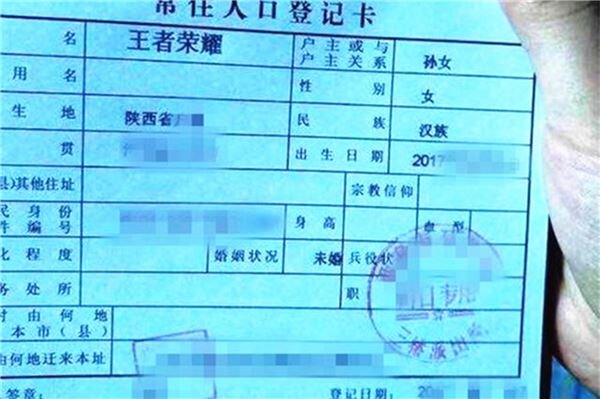 常住人口登记卡
名 王者荣耀 户主或与户主关系 孙女
用名 性别 女
生地 陕西省 民族 汉族
贯 出生日期 2017
县)其他住址 宗教信仰
民身份件编号 身高 血型
化程度 婚姻状况 未婚 兵役状
务处所 职
时由何地本市(县)
由何地迁来本址
签章: 登记日期: